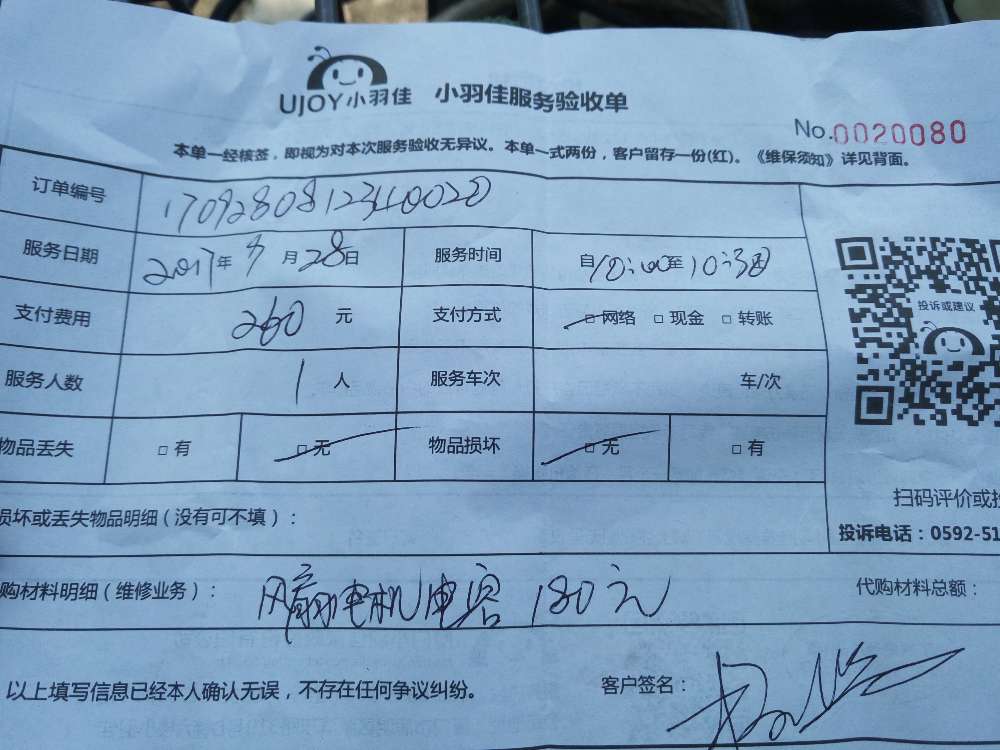 UJOY小羽佳 小羽佳服务验收单
No.0020080
本单一经核签，即视为对本次服务验收无异议。本单一式两份，客户留存一份(红)。《维保须知》详见背面。
订单编号
服务日期 2017年9月28日 服务时间 自10:00至10:30
支付费用 260元 支付方式 □网络 □现金 □转账
投诉或建议
服务人数 1人 服务车次 车/次
物品丢失 □有 □无 物品损坏 □无 □有
扫码评价或投
损坏或丢失物品明细（没有可不填）：
投诉电话：0592-51
购材料明细（维修业务）： 风扇电机电容 180元 代购材料总额：
以上填写信息已经本人确认无误，不存在任何争议纠纷。 客户签名：